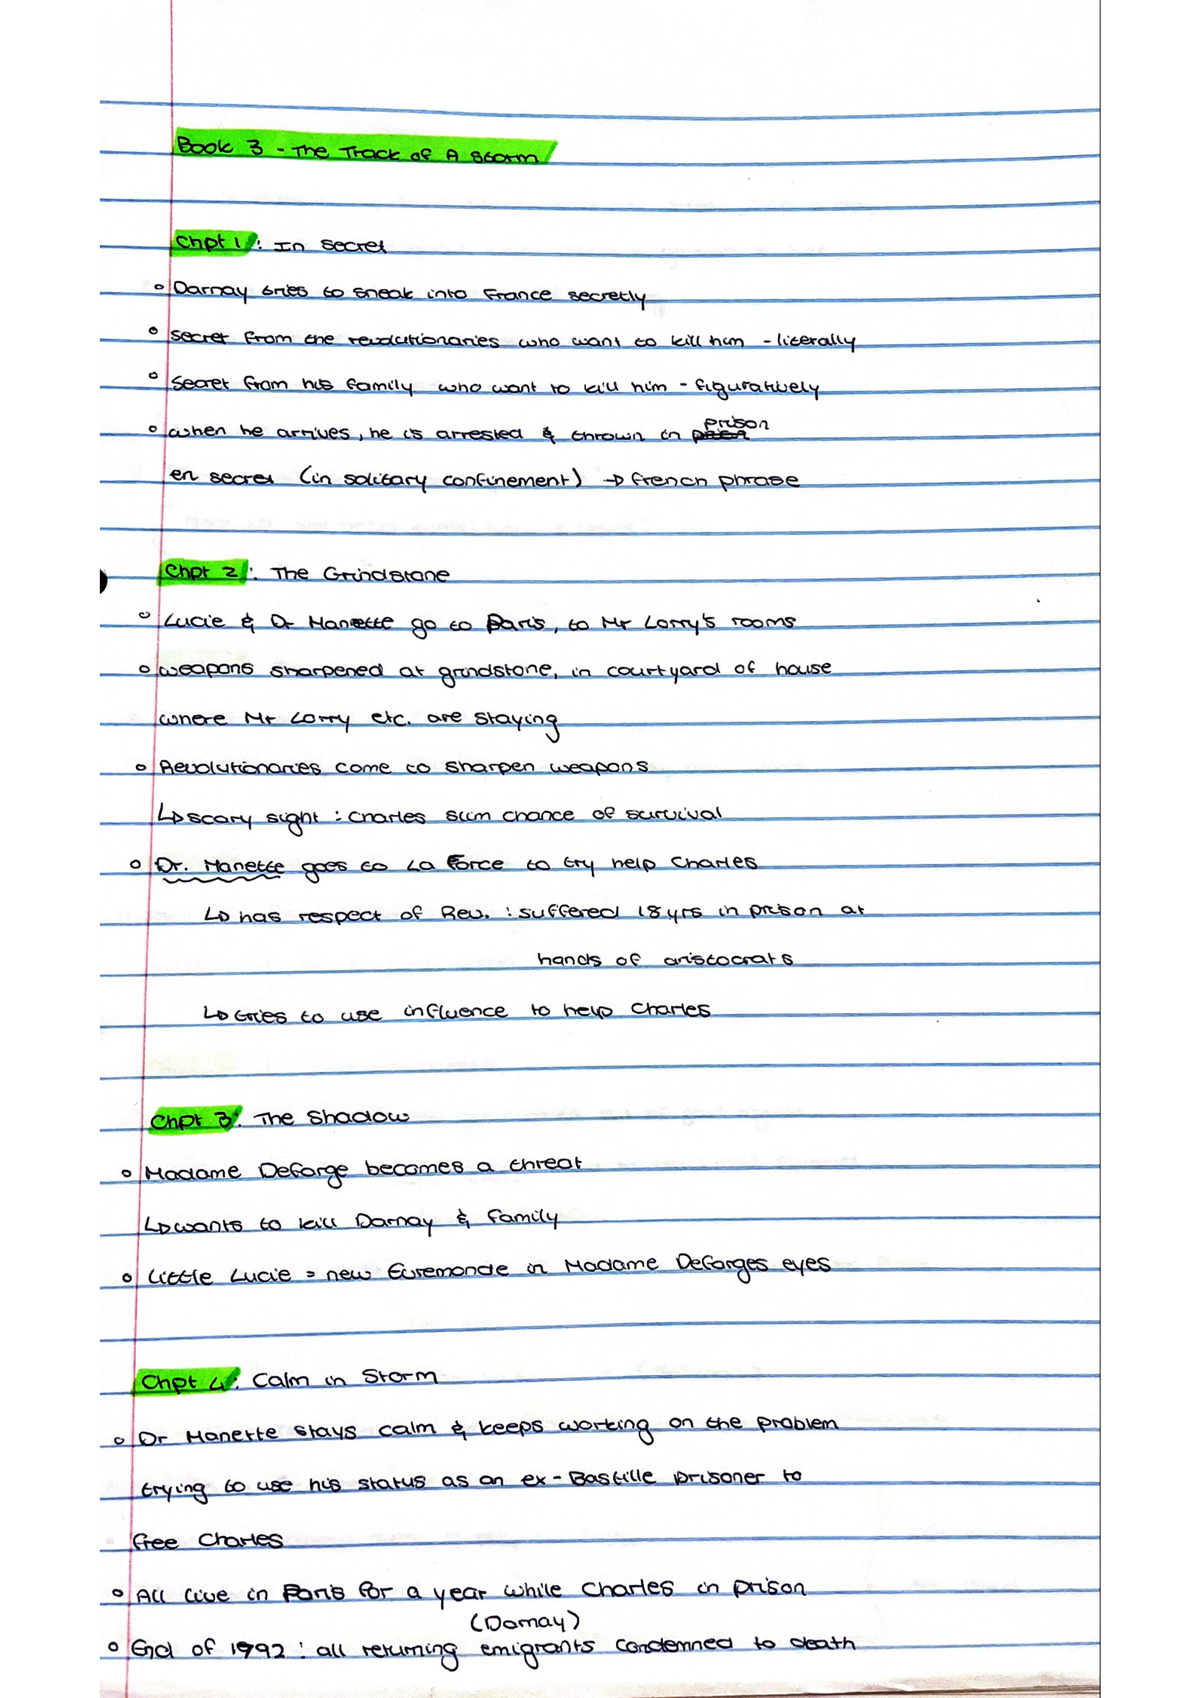 Book 3 - The Track of A Storm
Chpt 1: In secret
o Darnay tries to sneak into France secretly
o secret from the revolutionaries who want to kill him - literally
o Secret from his family who want to kill him - figuratively
prison
o when he arrives, he is arrested & thrown in
en secret (in solitary confinement) → French phrase
Chpt 2: The Grindstone
o Lucie & Dr Manette go to Paris, to Mr Lorry's rooms
o weapons sharpened at grindstone, in courtyard of house
where Mr Lorry etc. are staying
o Revolutionaries come to sharpen weapons
↳ scary sight : Charles slim chance of survival
o Dr. Manette goes to La Force to try help Charles
↳ has respect of Rev. : suffered 18 yrs in prison at
hands of aristocrats
↳ tries to use influence to help Charles
Chpt 3: The Shadow
o Madame Defarge becomes a threat
↳ wants to kill Darnay & family
o Little Lucie = new Evremonde in Madame Defarges eyes
Chpt 4: Calm in Storm
o Dr Manette stays calm & keeps working on the problem
trying to use his status as an ex-Bastille prisoner to
free Charles
o All live in Paris for a year while Charles in prison
(Darnay)
o End of 1992 : all returning emigrants condemned to death